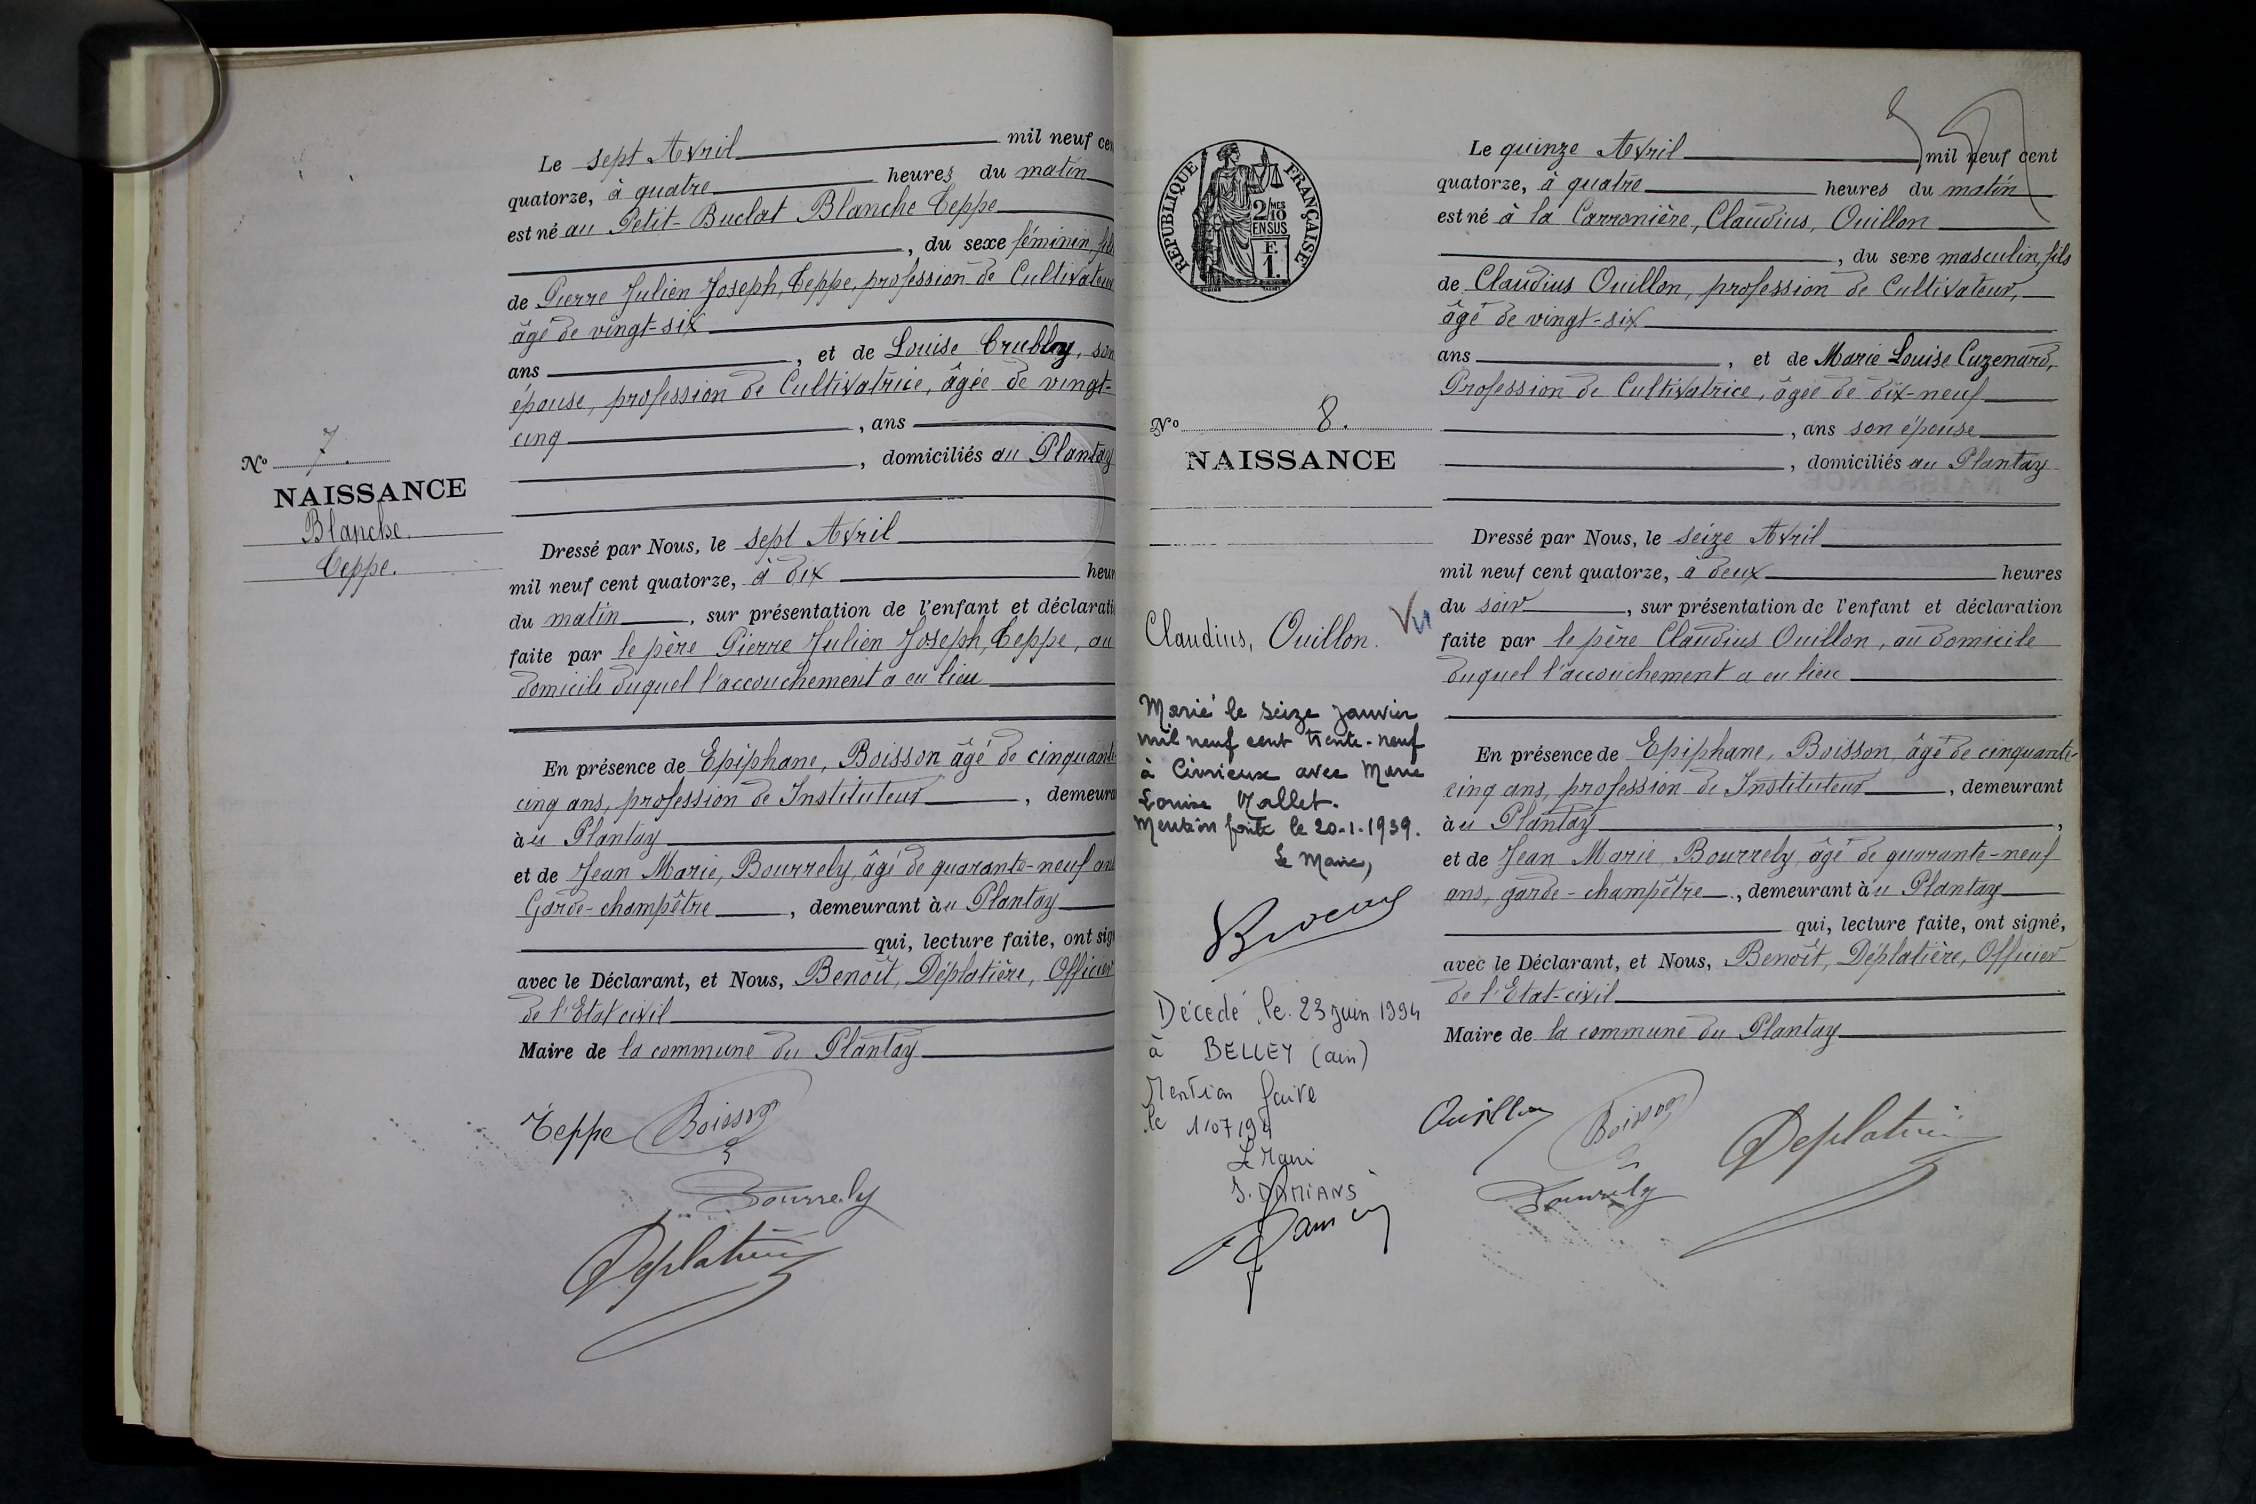 Le sept Avril mil neuf cen
quatorze, à quatre heures du matin
est né au Petit-Buclat Blanche Teppe
, du sexe féminin, fils
de Pierre Julien Joseph, Teppe, profession de Cultivateur
âgé de vingt-six
ans , et de Louise son
épouse, profession de Cultivatrice, âgée de vingt-
cinq , ans
, domiciliés au Plantay
No 7.
NAISSANCE
Blanche.
Teppe.
Dressé par Nous, le sept Avril
mil neuf cent quatorze, à dix heur
du matin , sur présentation de l'enfant et déclarati
faite par le père Pierre Julien Joseph, Teppe, au
domicile duquel l'accouchement a eu lieu
En présence de Epiphane, Boisson âgé de cinquante
cinq ans, profession de Instituteur , demeura
à u Plantay
et de Jean Marie, Bourrely, âgé de quarante-neuf ans
Garde-champêtre , demeurant à u Plantay
qui, lecture faite, ont sign
avec le Déclarant, et Nous, Benoît, Déplatière, Officier
de l'Etat civil
Maire de la commune du Plantay
Teppe Boisson
Bourrely
Deplatière
RÉPUBLIQUE FRANÇAISE
2 MES
10
EN SUS
F.
1.
No 8.
NAISSANCE
Claudius, Ouillon. Vu
Marié le seize janvier
mil neuf cent trente-neuf
à Civrieux avec Marie
Louise Vallet.
Mention faite le 20-1-1939.
Le Maire,
Décédé le 23 juin 1994
à BELLEY (ain)
Mention faite
le 1107194
Le Maire
J. DAMIANS
Le quinze Avril mil neuf cent
quatorze, à quatre heures du matin
est né à la Carronière, Claudius, Ouillon
, du sexe masculin, fils
de Claudius Ouillon, profession de Cultivateur,
âgé de vingt-six
ans , et de Marie Louise Cuzenard,
Profession de Cultivatrice, âgée de dix-neuf
, ans son épouse
, domiciliés au Plantay
Dressé par Nous, le seize Avril
mil neuf cent quatorze, à deux heures
du soir , sur présentation de l'enfant et déclaration
faite par le père Claudius Ouillon, au domicile
duquel l'accouchement a eu lieu
En présence de Epiphane, Boisson, âgé de cinquante-
cinq ans, profession de Instituteur , demeurant
à u Plantay ,
et de Jean Marie Bourrely, âgé de quarante-neuf
ans, garde-champêtre , demeurant à u Plantay
qui, lecture faite, ont signé,
avec le Déclarant, et Nous, Benoît, Déplatière, Officier
de l'Etat-civil
Maire de la commune du Plantay
Ouillon Boisson Deplatière
Bourrely